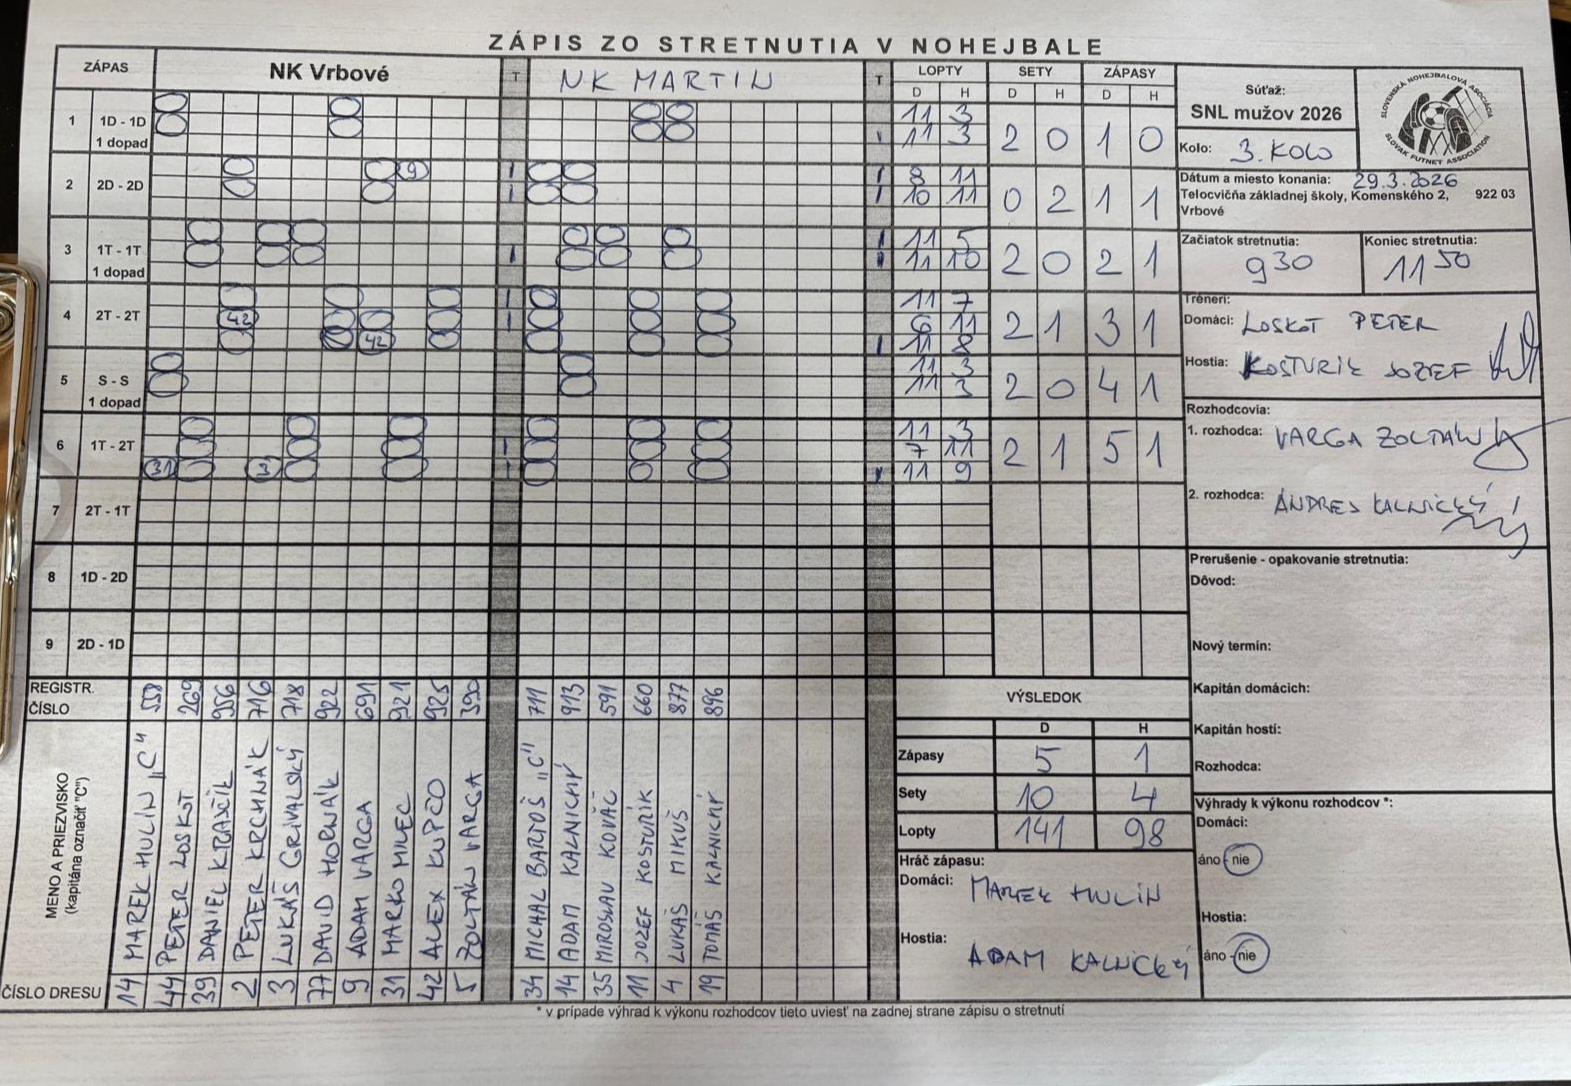 ZÁPIS ZO STRETNUTIA V NOHEJBALE
ZÁPAS
NK Vrbové
T
NK MARTIN
T
LOPTY
SETY
ZÁPASY
D H D H D H
1 1D - 1D 1 dopad
11 3
11 3
2 0 1 0
2 2D - 2D
9
8 11
10 11
0 2 1 1
3 1T - 1T 1 dopad
11 5
11 10
2 0 2 1
4 2T - 2T
42
42
11 7
6 11
11 8
2 1 3 1
5 S - S 1 dopad
11 3
11 3
2 0 4 1
6 1T - 2T
31 3
11 3
7 11
11 9
2 1 5 1
7 2T - 1T
8 1D - 2D
9 2D - 1D
REGISTR. ČÍSLO
558 269 956 716 718 922 691 921 925 390
711 913 591 660 877 896
MENO A PRIEZVISKO
(kapitána označiť "C")
MAREK HULÍN „C"
PETER LOSKOT
DANIEL KRAJČÍK
PETER KRCHNÁK
LUKÁŠ GRIVALSKÝ
DAVID HORNÁK
ADAM VARGA
MARKO MILEC
ALEX KUPČO
ZOLTÁN VARGA
MICHAL BARTOŠ „C"
ADAM KALNICKÝ
MIROSLAV KOVÁČ
JOZEF KOSTURÍK
LUKÁŠ MIKUŠ
TOMÁŠ KALNICKÝ
ČÍSLO DRESU
14 44 39 2 3 77 9 31 42 5
34 14 35 11 4 19
Súťaž:
SNL mužov 2026
SLOVENSKÁ NOHEJBALOVÁ ASOCIÁCIA
SLOVAK FUTNET ASSOCIATION
Kolo: 3. KOLO
Dátum a miesto konania: 29.3.2026
Telocvičňa základnej školy, Komenského 2, 922 03
Vrbové
Začiatok stretnutia:
9 30
Koniec stretnutia:
11 50
Tréneri:
Domáci: LOSKOT PETER
Hostia: KOSTURÍK JOZEF
Rozhodcovia:
1. rozhodca: VARGA ZOLTÁN
2. rozhodca: ANDREJ KALNICKÝ
Prerušenie - opakovanie stretnutia:
Dôvod:
Nový termín:
Kapitán domácich:
Kapitán hostí:
Rozhodca:
VÝSLEDOK
D H
Zápasy 5 1
Sety 10 4
Lopty 141 98
Hráč zápasu:
Domáci: MAREK HULÍN
Hostia: ADAM KALNICKÝ
Výhrady k výkonu rozhodcov *:
Domáci:
áno - nie
Hostia:
áno - nie
* v prípade výhrad k výkonu rozhodcov tieto uviesť na zadnej strane zápisu o stretnutí